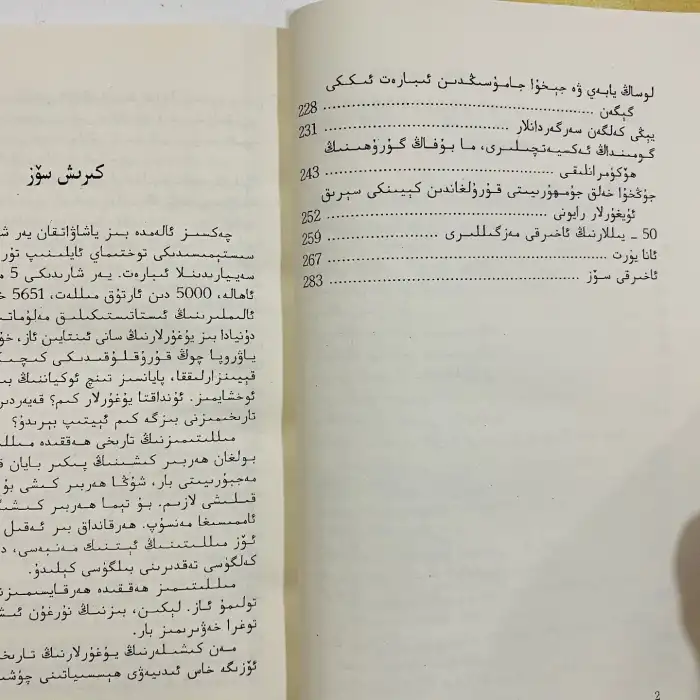 لوساڭ يابەي ۋە جېخۇا جامۇسىڭدىن ئىبارەت ئىككى
گېگەن ........ 228
يېڭى كەلگەن سەرگەردانلار ........ 231
گومىنداڭ ئەكسىيەتچىلىرى، ما بۇفاڭ گۇرۇھىنىڭ
ھۆكۈمرانلىقى ........ 243
جۇڭخۇا خەلق جۇمھۇرىيىتى قۇرۇلغاندىن كېيىنكى سېرىق
ئۇيغۇرلار رايونى ........ 252
50 ـ يىللارنىڭ ئاخىرقى مەزگىللىرى ........ 259
ئانا يۇرت ........ 267
ئاخىرقى سۆز ........ 283
2
كىرىش سۆز
چەكسىز ئالەمدە بىز ياشاۋاتقان يەر
سىستېمىسىدىكى توختىماي ئايلىنىپ
سەييارىدىنلا ئىبارەت. يەر شارىدىكى 5
ئاھالە، 5000 دىن ئارتۇق مىللەت، 5651
ئالىملىرىنىڭ ئىستاتىستىكىلىق
دۇنيادا بىز يۇغۇرلارنىڭ سانى ئىنتايىن ئاز،
ياۋروپا چوڭ قۇرۇقلۇقىدىكى
قېيىنزارلىققا، پايانسىز تىنچ ئوكياننىڭ
ئوخشايمىز. ئۇنداقتا يۇغۇرلار كىم؟
تارىخىمىزنى بىزگە كىم ئېيتىپ بېرىدۇ؟
مىللىتىمىزنىڭ تارىخى ھەققىدە
بولغان ھەربىر كىشىنىڭ پىكىر بايان
مەجبۇرىيىتى بار، شۇڭا ھەربىر كىشى بۇ
قىلىشى لازىم. بۇ تېما ھەربىر
ئاممىسىغا مەنسۇپ. ھەرقانداق بىر ئەقىل
ئۆز مىللىتىنىڭ ئېتنىك مەنبەسى،
كەلگۈسى تەقدىرىنى بىلگۈسى كېلىدۇ.
مىللىتىمىز ھەققىدە
تولىمۇ ئاز. لېكىن، بىزنىڭ نۇرغۇن
توغرا خەۋىرىمىز بار.
مەن كىشىلەرنىڭ يۇغۇرلارنىڭ
ئۆزىگە خاس ئىدىيەۋى ھېسسىياتىنى